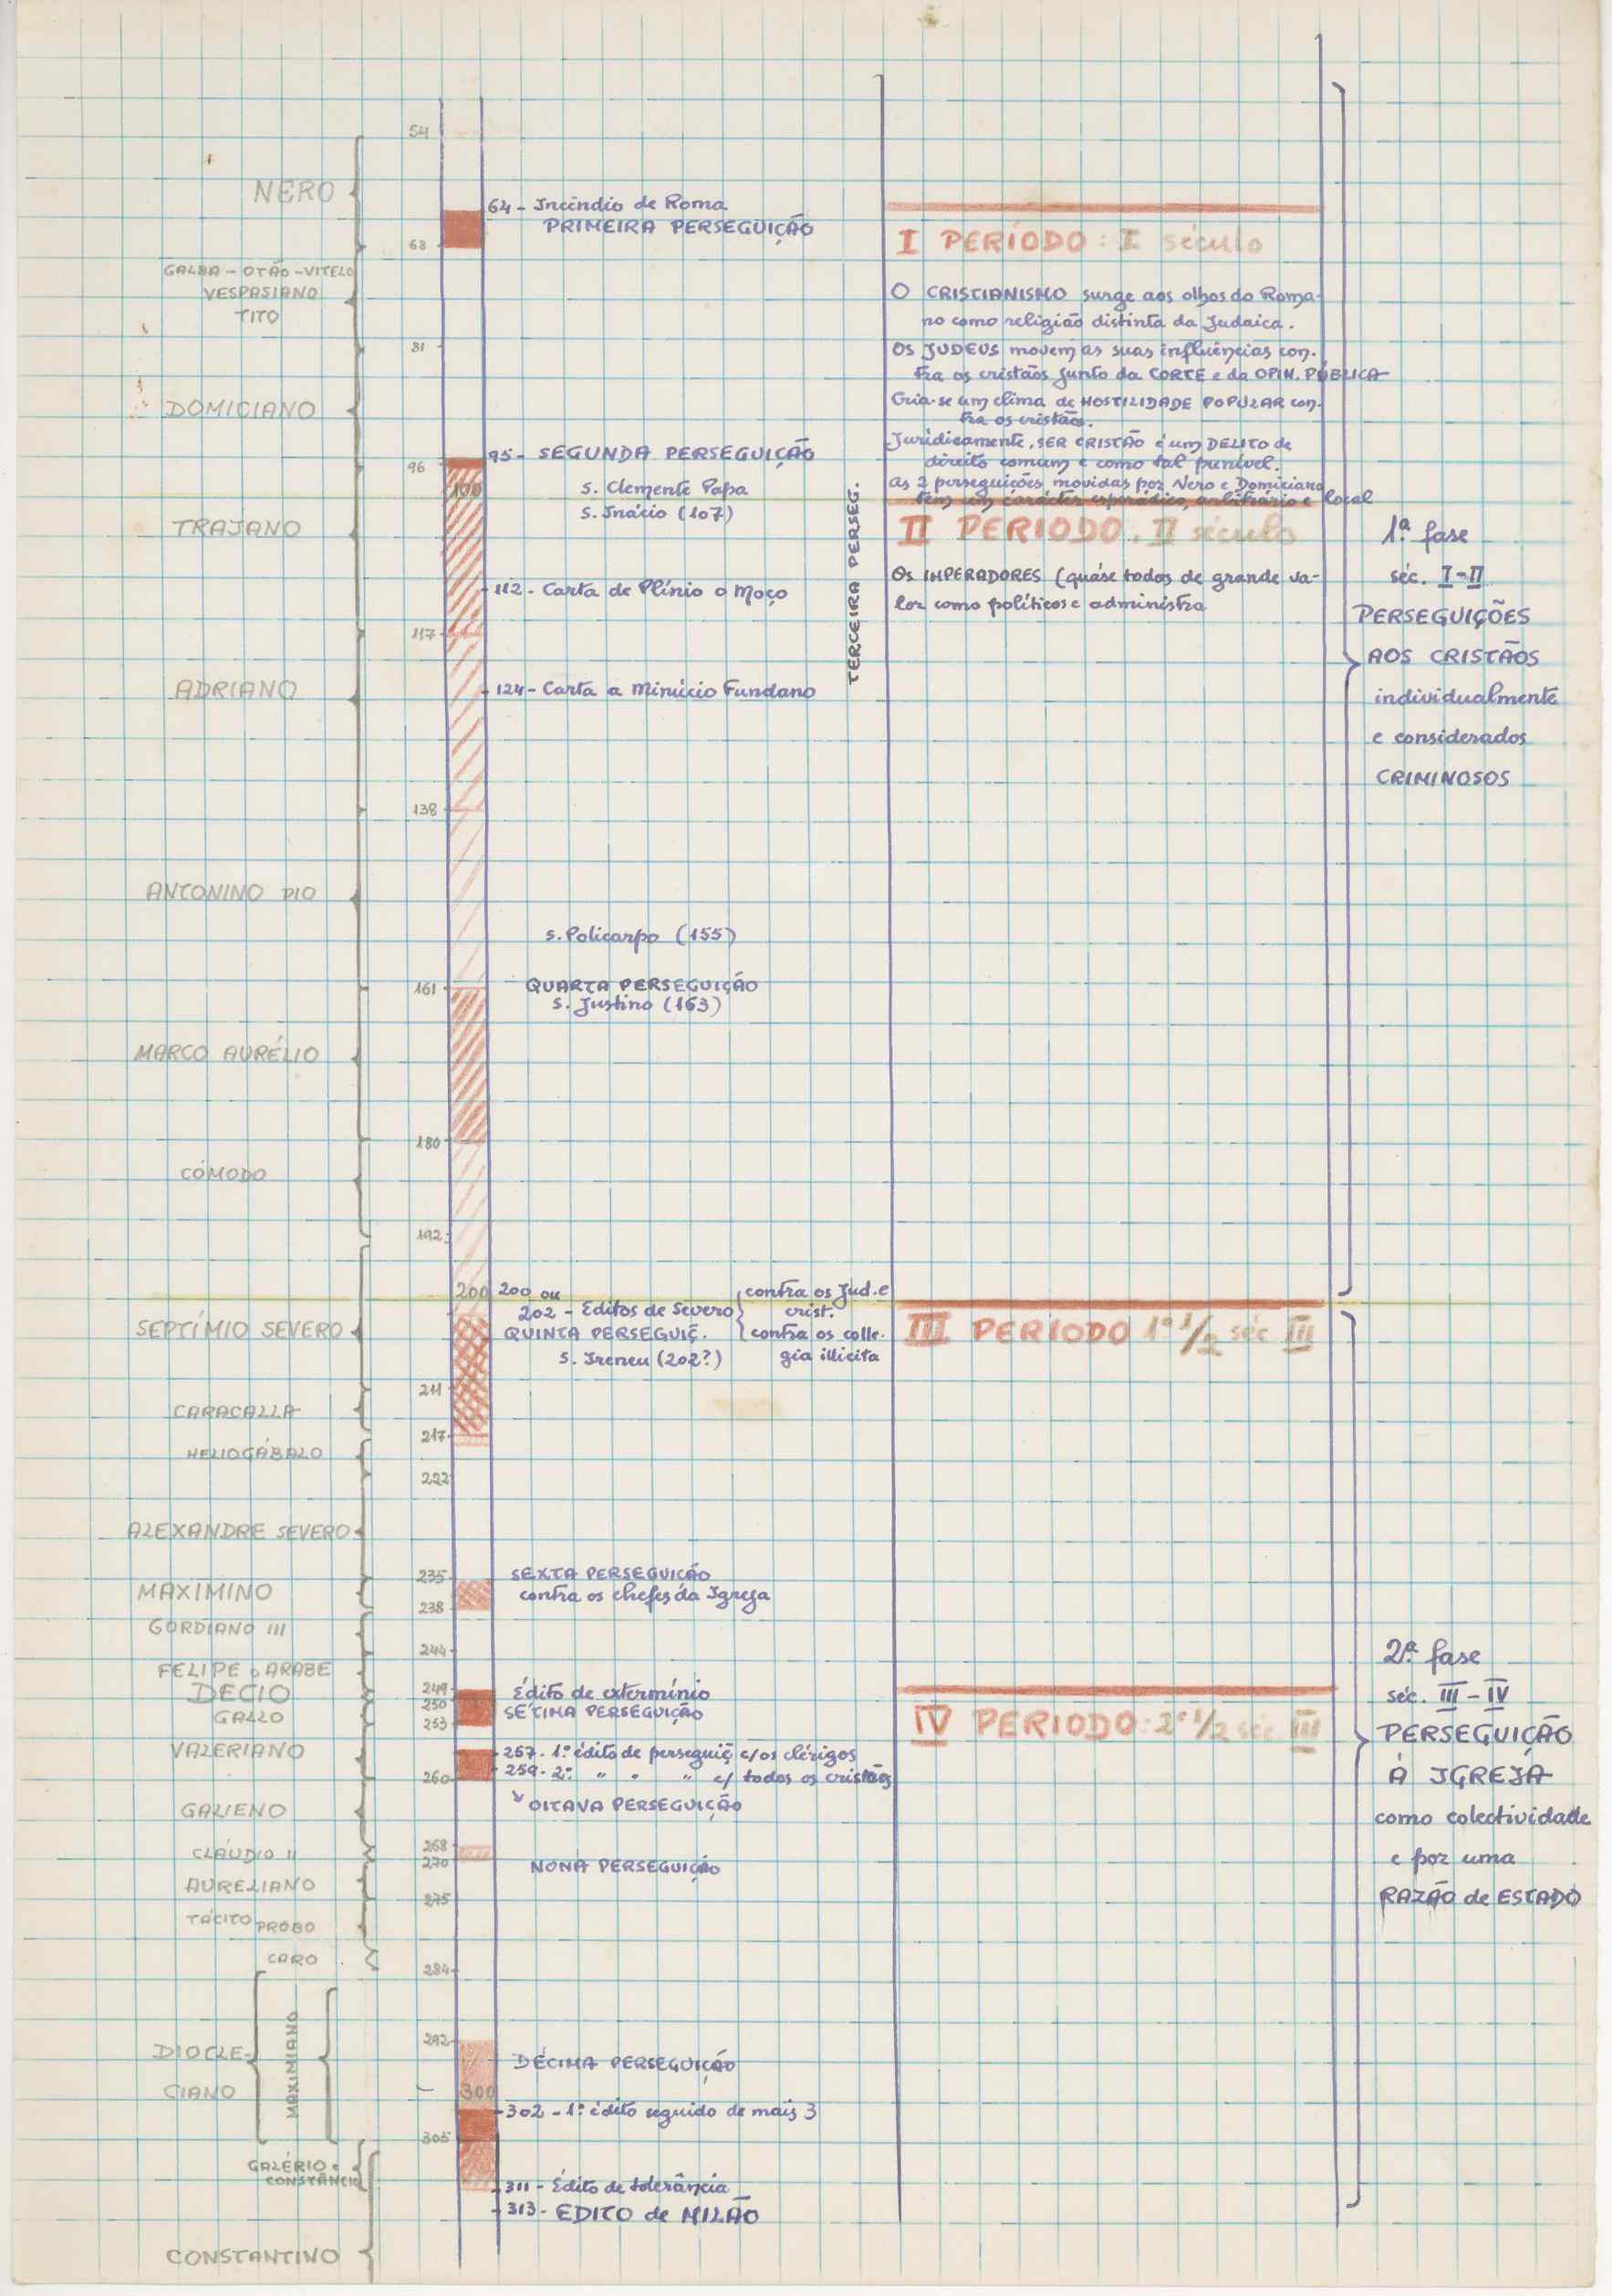 54
NERO
68
GALBA - OTÃO - VITELO
VESPASIANO
TITO
81
DOMICIANO
96
100
TRAJANO
117
ADRIANO
138
ANTONINO PIO
161
MARCO AURÉLIO
180
CÓMODO
192
200
SEPTÍMIO SEVERO
211
CARACALLA
217
HELIOGÁBALO
222
ALEXANDRE SEVERO
235
MAXIMINO
238
GORDIANO III
244
FELIPE o ARABE
249
DECIO
250
GALLO
253
VALERIANO
260
GALIENO
268
CLÁUDIO II
270
AURELIANO
275
TÁCITO PROBO
CARO
284
292
DIOCLE-
CIANO
MAXIMIANO
300
305
GALÉRIO e
CONSTÂNCIO
CONSTANTINO
64 - Incêndio de Roma
PRIMEIRA PERSEGUIÇÃO
95 - SEGUNDA PERSEGUIÇÃO
S. Clemente Papa
S. Inácio (107)
TERCEIRA PERSEG.
112 - Carta de Plínio o Moço
124 - Carta a Minúcio Fundano
S. Policarpo (155)
QUARTA PERSEGUIÇÃO
S. Justino (163)
200 ou
202 - Editos de Severo
contra os Jud. e
crist.
contra os colle-
gia illicita
QUINTA PERSEGUIÇ.
S. Ireneu (202?)
SEXTA PERSEGUIÇÃO
contra os chefes da Igreja
Édito de extermínio
SÉTIMA PERSEGUIÇÃO
257 - 1º édito de perseguiç c/ os clérigos
259 - 2º " " " c/ todos os cristãos
OITAVA PERSEGUIÇÃO
NONA PERSEGUIÇÃO
DÉCIMA PERSEGUIÇÃO
302 - 1º édito seguido de mais 3
311 - Édito de tolerância
313 - EDITO de MILÃO
I PERÍODO : I século
O CRISTIANISMO surge aos olhos do Roma-
no como religião distinta da Judaica.
OS JUDEUS movem as suas influências con-
tra os cristãos junto da CORTE e da OPIN. PÚBLICA
Cria-se um clima de HOSTILIDADE POPULAR con-
tra os cristãos.
Juridicamente, SER CRISTÃO é um DELITO de
direito comum e como tal punível.
As 2 perseguições movidas por Nero e Domiciano
tem um carácter esporádico, arbitrário e local
II PERIODO. II século
Os IMPERADORES (quáse todos de grande va-
lor como políticos e administra
III PERIODO 1ª 1/2 séc III
IV PERIODO: 2ª 1/2 séc III
1ª fase
séc. I-II
PERSEGUIÇÕES
AOS CRISTÃOS
individualmente
e considerados
CRIMINOSOS
2ª fase
séc. III - IV
PERSEGUIÇÃO
À IGREJA
como colectividade
e por uma
RAZÃO de ESTADO